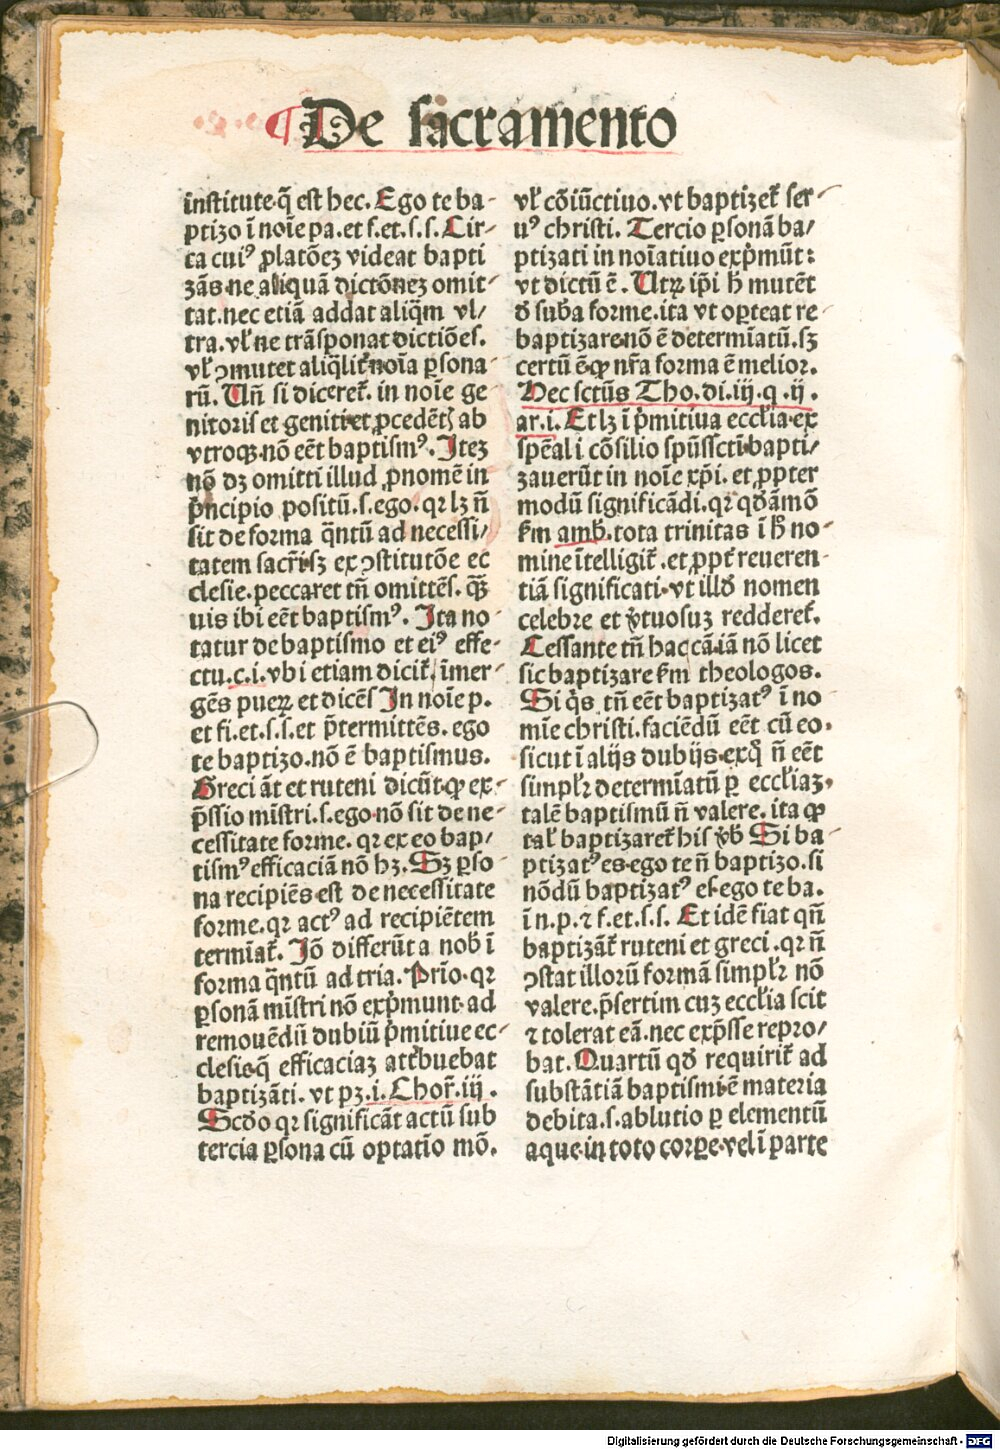 ¶De sacramento
institute·q̄ est hec. Ego te ba-
ptizo ī noīe pa.et f.et.s.s. Cir-
ca cuiꝰ ꝓlatōez videat bapti
zās·ne aliquā dictōnez omit-
tat.nec etiā addat aliq̄m vl/
tra.vl̄ ne trāsponat dictiōes.
vl̄ ꝯmutet aliq̄lit̄ noīa ꝑsona-
rū. Un̄ si diceret̄. in noīe ge
nitoris et geniti·et ꝓcedētꝭ ab
vtroqꝫ.nō eēt baptismꝰ. Itez
nō dꝫ omitti illud ꝓnomē in
p̄ncipio positū.s.ego. qꝛ lꝫ n̄
sit de forma q̄ntū ad necessi/
tatem sacr̄i·sꝫ ex ꝯstitutōe ec
clesie.peccaret tn̄ omittēs. qꝫ̄
uis ibi eēt baptismꝰ. Ita no
tatur de baptismo et eiꝰ effe-
ctu.c.i.vbi etiam dicit̄, īmer-
gēs pueꝝ et dicēs In noīe p.
et fi.et.s.s.et p̄termittēs. ego
te baptizo.nō ē baptismus.
Greci āt et ruteni dicūt·ꝙ ex-
p̄ssio mīstri.s.ego·nō sit de ne-
cessitate forme. qꝛ ex eo bap/
tismꝰ efficaciā nō hꝫ. Sꝫ ꝑso
na recipiēs·est de necessitate
forme.qꝛ actꝰ ad recipiētem
termīat̄. Iō differūt a nob̄ ī
forma q̄ntū ad tria. Prīo·qꝛ
ꝑsonā mīstri nō exp̄munt·ad
remouēdū dubiū p̄mitiue ec-
clesie·q̄ efficaciaz att̄buebat
baptizāti. vt pꝫ.i.Chor̄.iij.
Scd̄o qꝛ significāt actū sub
tercia ꝑsona cū optatīo mō.
vl̄ cōiūctiuo.vt baptizet̄ ser-
uꝰ christi. Tercio ꝑsonā ba/
ptizati in noīatiuo exp̄mūt:
vt dictū ē. Utꝝ ip̄i h̄ mutēt
d̄ sub̄a forme.ita vt oꝑteat re
baptizare·nō ē determīatū.sꝫ
certū ē·ꝙ nr̄a forma ē melior.
Hec sctūs Tho.di.iij.q.ij.
ar.i. Et lꝫ ī p̄mitiua eccl̄ia·ex
spēali cōsilio spūssctī·bapti/
zauerūt in noīe xp̄i. et ꝓpter
modū significādi.qꝛ qd̄āmō
km̄ amb̄.tota trinitas ī h̄ no-
mine ītelligit̄ .et ꝓpt̄ reueren-
tiā significati·vt illd̄ nomen
celebre et v̄tuosuz redderet̄.
Cessante tn̄ hac cā·iā nō licet
sic baptizare km̄ theologos.
Si q̄s tn̄ eēt baptizatꝰ ī no
mīe christi.faciēdū eēt cū eo.
sicut ī alijs dubijs·exq̄ n̄ eēt
simpl̄r determīatū ꝑ eccl̄iaz.
talē baptismū n̄ valere. ita ꝙ
tal̄ baptizaret̄ his v̄b̄ Si ba-
ptizatꝰ es·ego te n̄ baptizo.si
nōdū baptizatꝰ es·ego te ba.
ī n.p.⁊ f.et.s.s. Et idē fiat qn̄
baptizāt̄ ruteni et greci.qꝛ n̄
ꝯstat illorū formā simpl̄r nō
valere.p̄sertim cuz eccl̄ia scit
⁊ tolerat eā.nec exp̄sse repro/
bat. Quartū qd̄ requirit̄ ad
substātiā baptismi·ē materia
debita.s.ablutio ꝑ elementū
aque·in toto corꝑe·vel ī parte
Digitalisierung gefördert durch die Deutsche Forschungsgemeinschaft - DFG